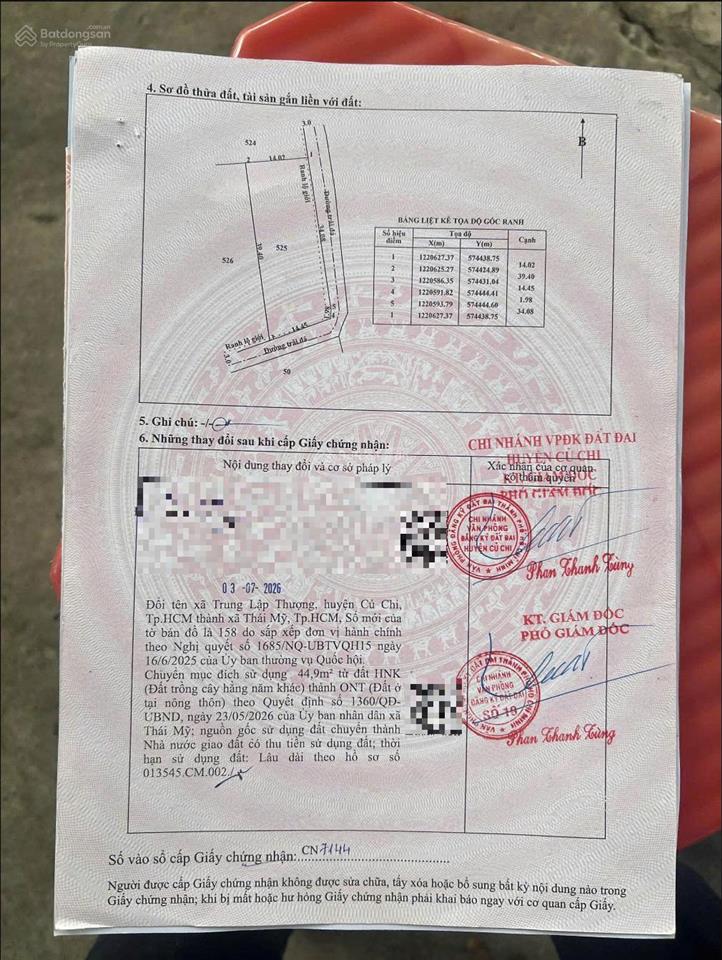 Batdongsan.com.vn
by PropertyGuru
4. Sơ đồ thửa đất, tài sản gắn liền với đất:
B
524
3.0
2
14.02
1
Ranh lộ giới
34.08
Đường trải đá
39.40
525
526
1.98
5
4
14.45
3
Ranh lộ giới
3.0
Đường trải đá
50
BẢNG LIỆT KÊ TỌA ĐỘ GÓC RANH
Số hiệu điểm Tọa độ Cạnh
X(m) Y(m)
1 1220627.37 574438.75
14.02
2 1220625.27 574424.89
39.40
3 1220586.35 574431.04
14.45
4 1220591.82 574444.41
1.98
5 1220593.79 574444.60
34.08
1 1220627.37 574438.75
5. Ghi chú: -/-
6. Những thay đổi sau khi cấp Giấy chứng nhận:
Nội dung thay đổi và cơ sở pháp lý
Xác nhận của cơ quan
có thẩm quyền
CHI NHÁNH VPĐK ĐẤT ĐAI
HUYỆN CỦ CHI
KT. GIÁM ĐỐC
PHÓ GIÁM ĐỐC
VĂN PHÒNG ĐĂNG KÝ ĐẤT ĐAI THÀNH PHỐ HỒ CHÍ MINH
CHI NHÁNH
VĂN PHÒNG
ĐĂNG KÝ ĐẤT ĐAI
HUYỆN CỦ CHI
Phan Thanh Tùng
03 -07- 2026
Đổi tên xã Trung Lập Thượng, huyện Củ Chi,
Tp.HCM thành xã Thái Mỹ, Tp.HCM, Số mới của
tờ bản đồ là 158 do sắp xếp đơn vị hành chính
theo Nghị quyết số 1685/NQ-UBTVQH15 ngày
16/6/2025 của Ủy ban thường vụ Quốc hội.
Chuyển mục đích sử dụng 44,9m² từ đất HNK
(Đất trồng cây hằng năm khác) thành ONT (Đất ở
tại nông thôn) theo Quyết định số 1360/QĐ-
UBND, ngày 23/05/2026 của Ủy ban nhân dân xã
Thái Mỹ; nguồn gốc sử dụng đất chuyển thành
Nhà nước giao đất có thu tiền sử dụng đất; thời
hạn sử dụng đất: Lâu dài theo hồ sơ số
013545.CM.002./.
KT. GIÁM ĐỐC
PHÓ GIÁM ĐỐC
VĂN PHÒNG ĐĂNG KÝ ĐẤT ĐAI THÀNH PHỐ HỒ CHÍ MINH
CHI NHÁNH
VĂN PHÒNG
ĐĂNG KÝ ĐẤT ĐAI
SỐ 19
Phan Thanh Tùng
Số vào sổ cấp Giấy chứng nhận: CN7144
Người được cấp Giấy chứng nhận không được sửa chữa, tẩy xóa hoặc bổ sung bất kỳ nội dung nào trong
Giấy chứng nhận; khi bị mất hoặc hư hỏng Giấy chứng nhận phải khai báo ngay với cơ quan cấp Giấy.